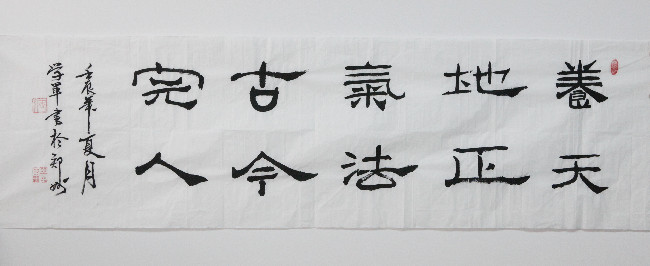 養天
地正
氣法
古今
完人
壬辰年夏月
学军書於郑州